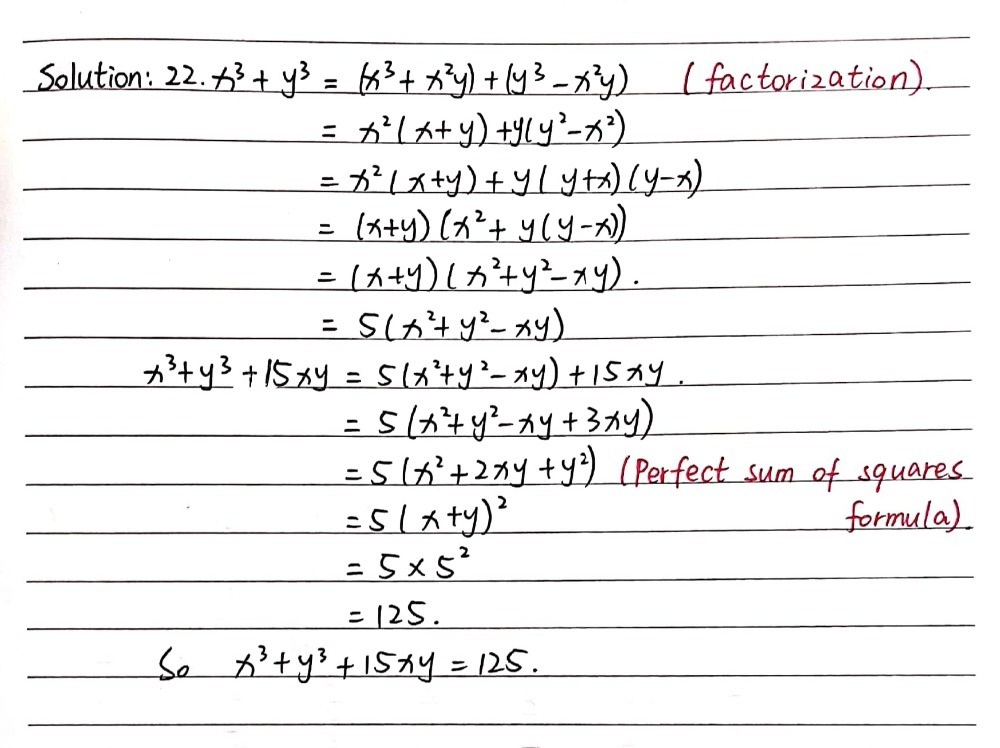 Solution: 22. x³ + y³ = (x³ + x²y) + (y³ - x²y) (factorization).
= x²(x+y) + y(y²-x²)
= x²(x+y) + y(y+x)(y-x)
= (x+y)(x² + y(y-x))
= (x+y)(x²+y²-xy).
= 5(x²+y²-xy)
x³+y³+15xy = 5(x²+y²-xy)+15xy.
= 5(x²+y²-xy+3xy)
= 5(x²+2xy+y²) (Perfect sum of squares
= 5(x+y)² formula).
= 5×5²
= 125.
So x³+y³+15xy = 125.